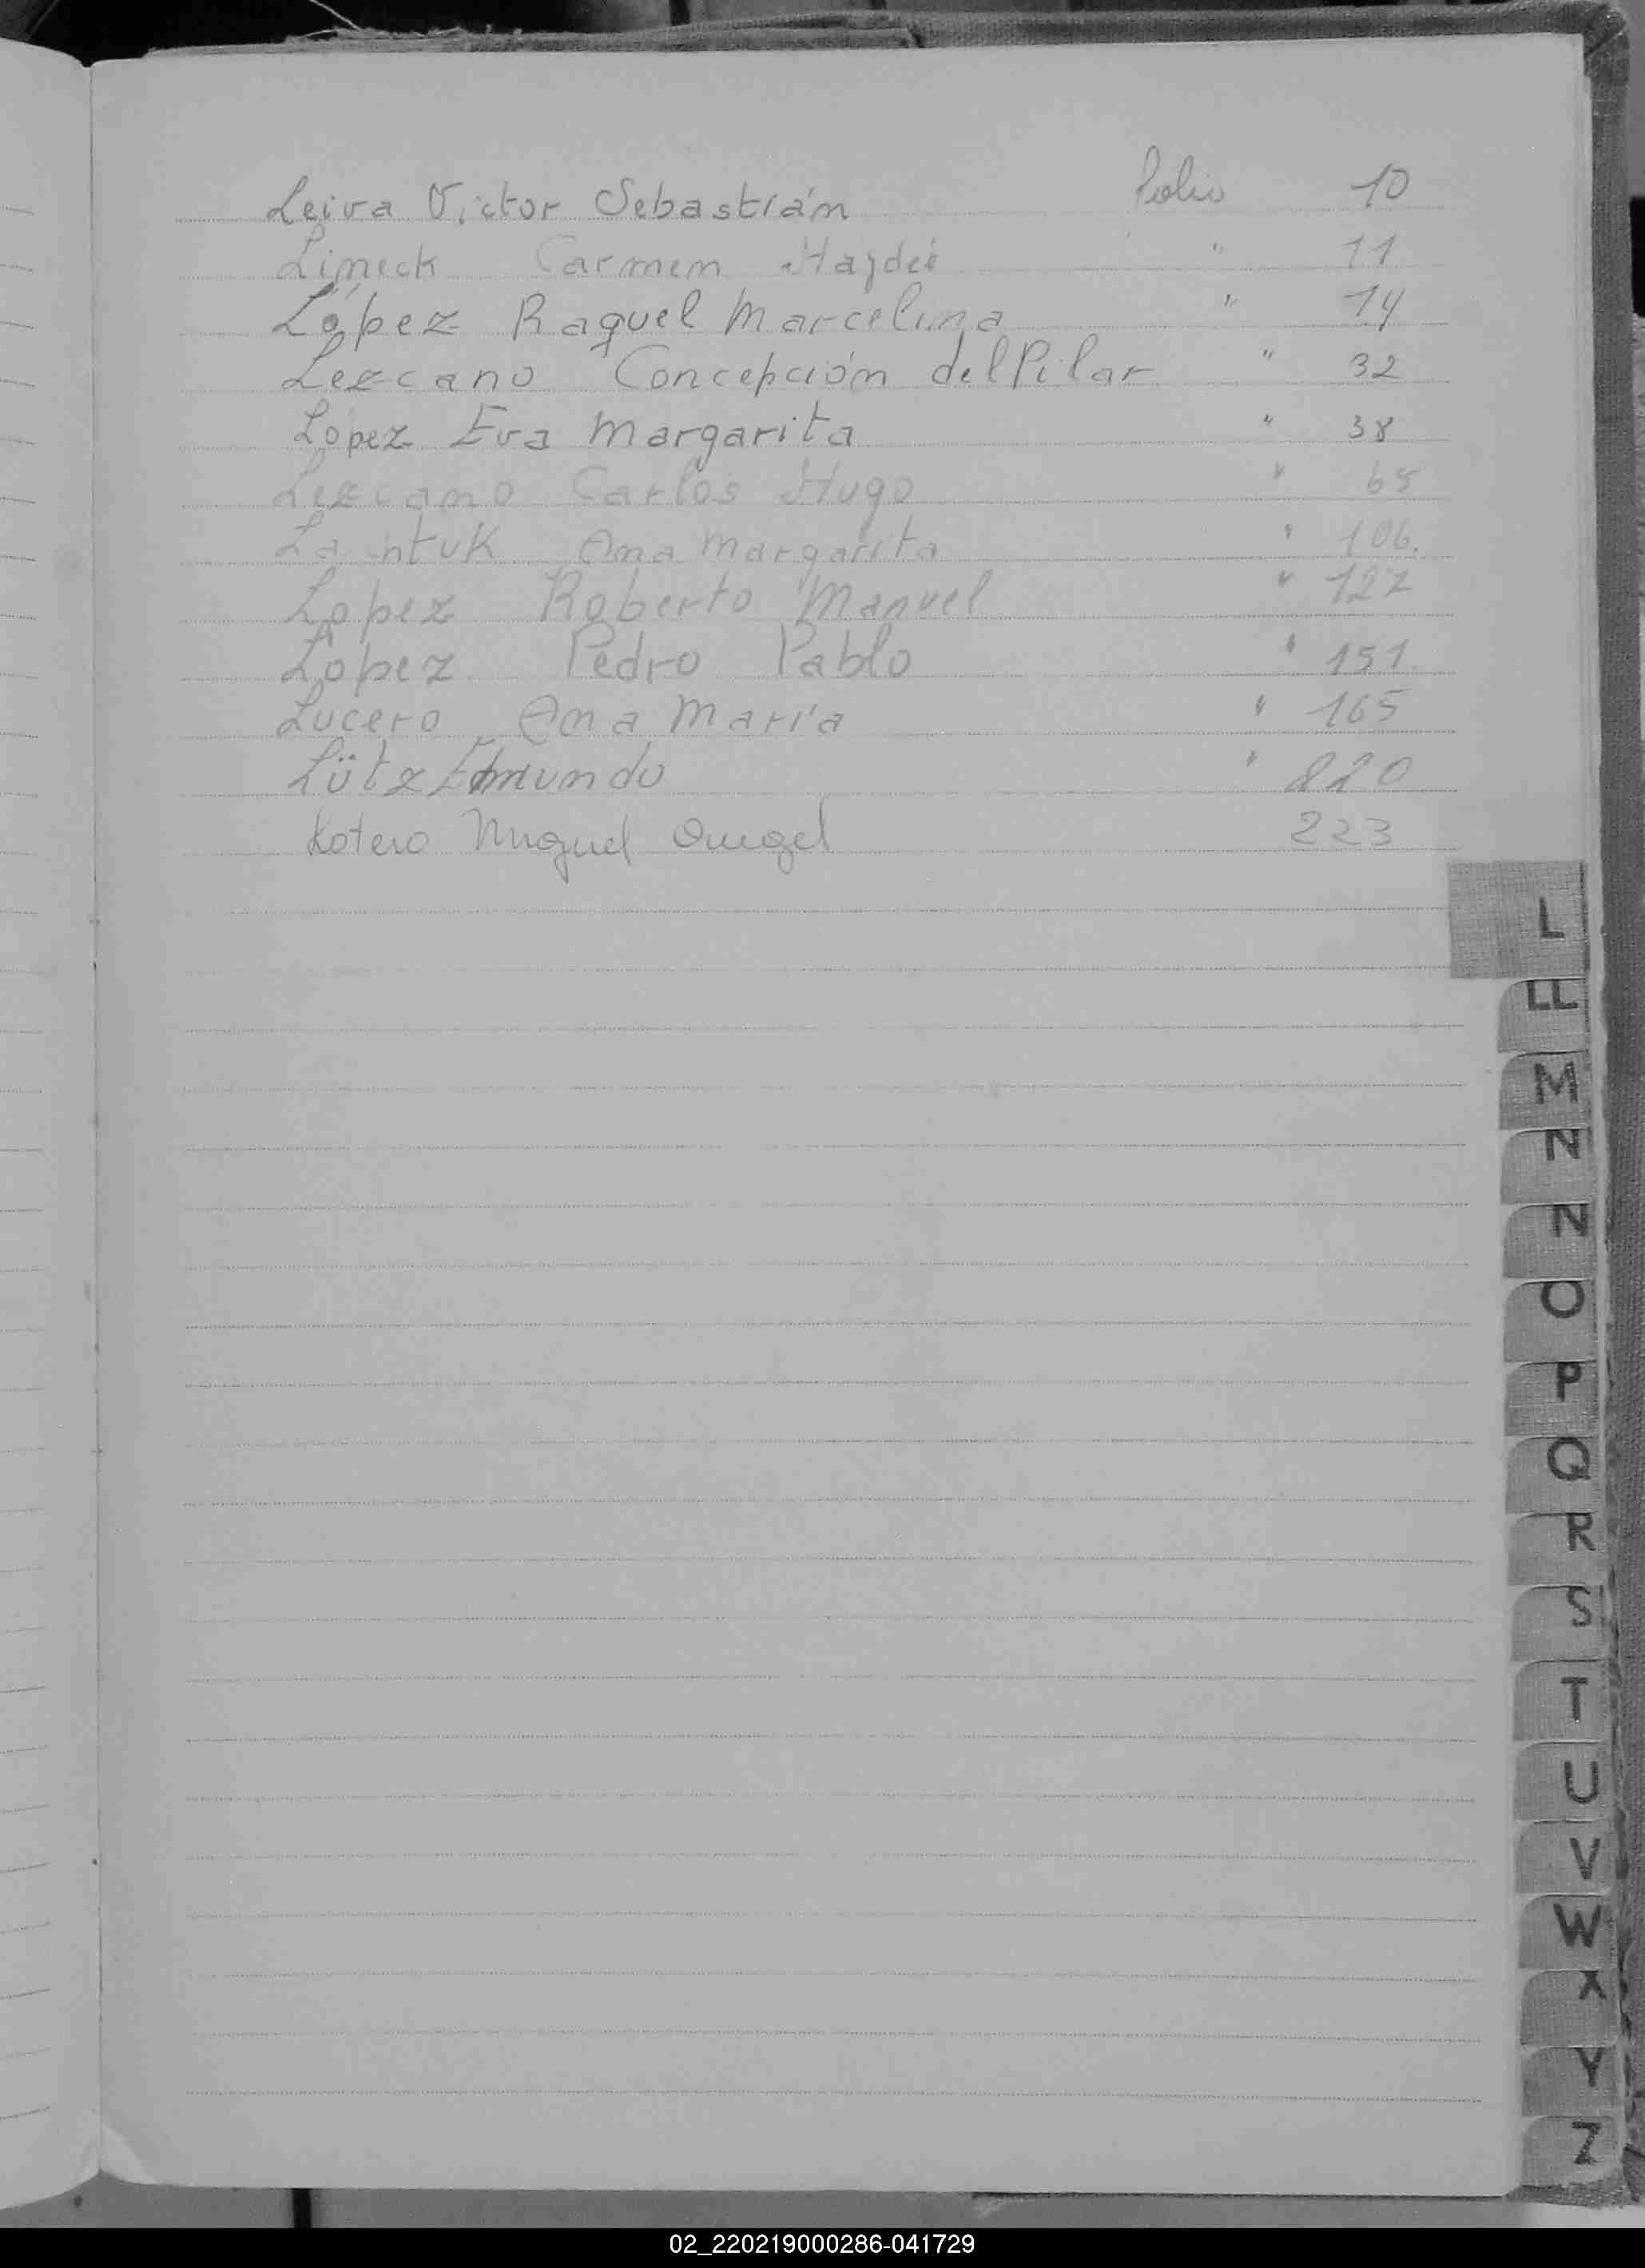 Leiva Victor Sebastián folio 10
Limeck Carmen Haydeé " 11
López Raquel Marcelina " 14
Lezcano Concepción del Pilar " 32
López Eva Margarita " 38
Lezcano Carlos Hugo " 65
Ana Margarita " 106.
Lopez Roberto Manuel " 127
Lopez Pedro Pablo " 151
Lucero Ana María " 165
Lütz Edmundo " 220
Kotero Miguel Angel 223
L
LL
M
N
N
O
P
Q
R
S
T
U
V
W
X
Y
Z
02_220219000286-041729